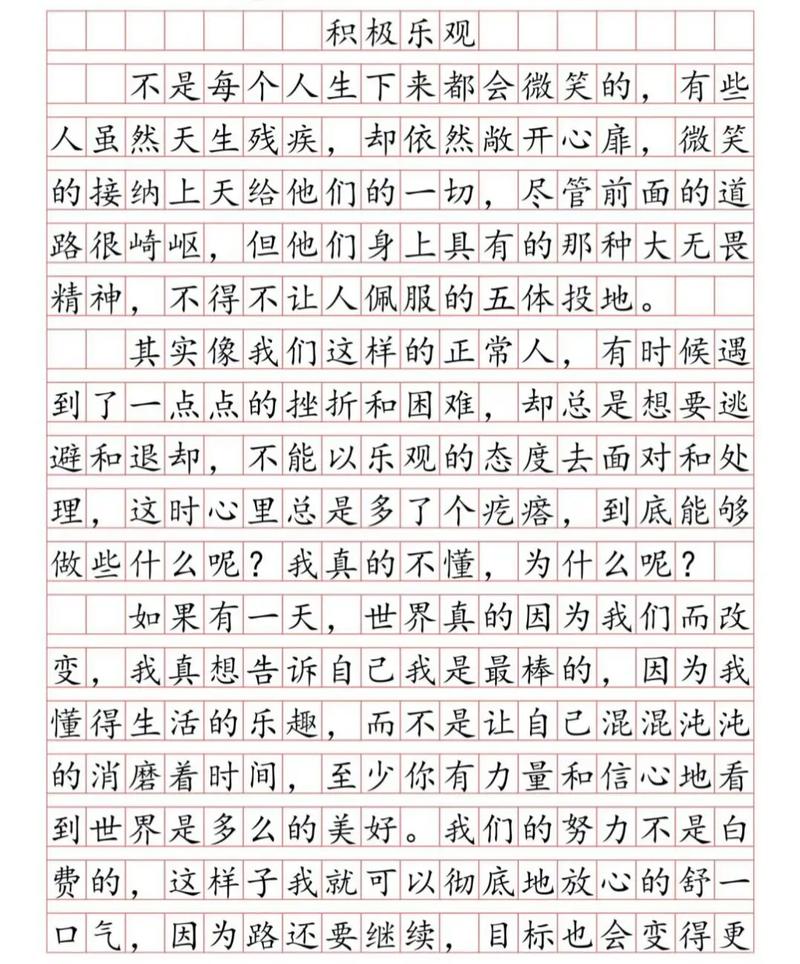 积极乐观
不是每个人生下来都会微笑的，有些
人虽然天生残疾，却依然敞开心扉，微笑
的接纳上天给他们的一切，尽管前面的道
路很崎岖，但他们身上具有的那种大无畏
精神，不得不让人佩服的五体投地。
其实像我们这样的正常人，有时候遇
到了一点点的挫折和困难，却总是想要逃
避和退却，不能以乐观的态度去面对和处
理，这时心里总是多了个疙瘩，到底能够
做些什么呢？我真的不懂，为什么呢？
如果有一天，世界真的因为我们而改
变，我真想告诉自己我是最棒的，因为我
懂得生活的乐趣，而不是让自己混混沌沌
的消磨着时间，至少你有力量和信心地看
到世界是多么的美好。我们的努力不是白
费的，这样子我就可以彻底地放心的舒一
口气，因为路还要继续，目标也会变得更